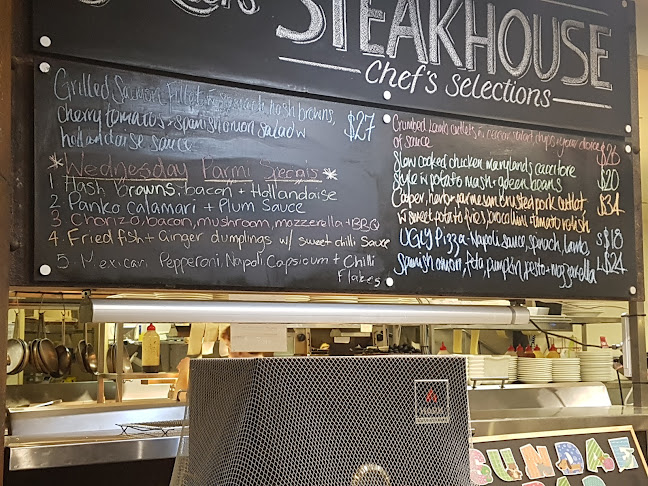 STEAKHOUSE
Chef's Selections
Grilled Salmon fillet hash browns,
cherry tomato + spanish onion salad w $27
hollandaise sauce
*Wednesday Parmi Specials*
1 Hash browns, bacon + Hollandaise
2 Panko calamari + Plum Sauce
3 Chorizo, bacon, mushroom, mozzerella + BBQ
4. Fried fish + Ginger dumplings w/ sweet chilli Sauce
5. Mexican. Pepperoni, Napoli, Capsicum + Chilli
Flakes
Crumbed Lamb cutlets, salad, chips + your choice
of sauce $26
Slow cooked chicken maryland cacciatore
style w potato mash + green beans $20
herb + parmesan crusted pork cutlet $34
w sweet potato fries, broccolini + tomato relish
UGLY Pizza - Napoli sauce, spinach, lamb, S $18
Spanish onion, feta, pumpkin, pesto + mozzarella L $24
SUNDAE
BAR